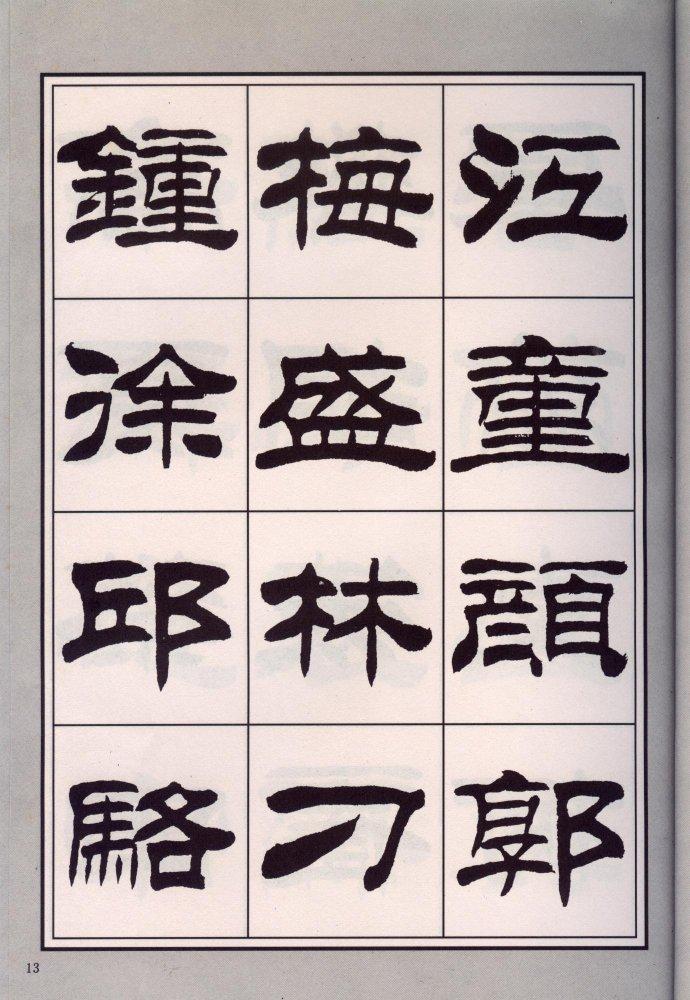 江童顔郭
梅盛林刁
鍾徐邱駱
13